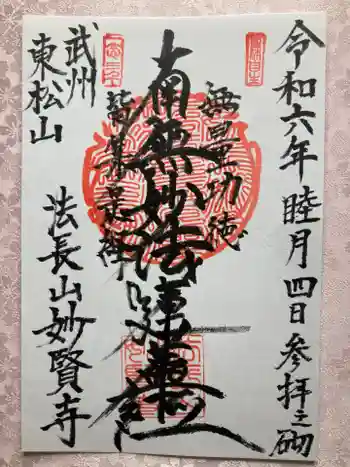 令和六年睦月四日参拝之砌
無量功徳
南無妙法蓮華経
皆集是経
武州
東松山
法長山妙賢寺